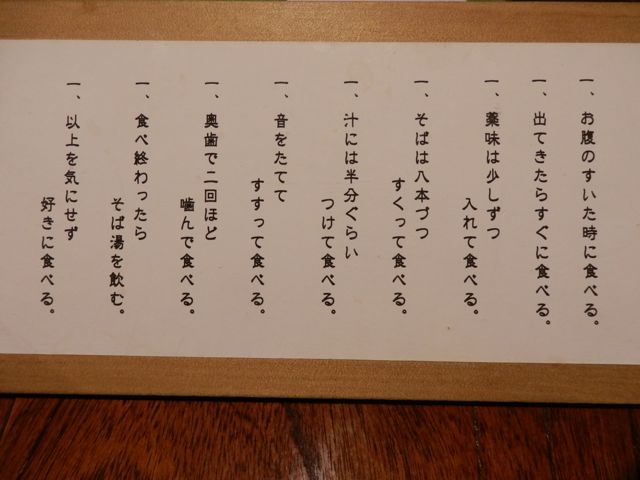 一、お腹のすいた時に食べる。
一、出てきたらすぐに食べる。
一、薬味は少しずつ
入れて食べる。
一、そばは八本づつ
すくって食べる。
一、汁には半分ぐらい
つけて食べる。
一、音をたてて
すすって食べる。
一、奥歯で二回ほど
噛んで食べる。
一、食べ終わったら
そば湯を飲む。
一、以上を気にせず
好きに食べる。